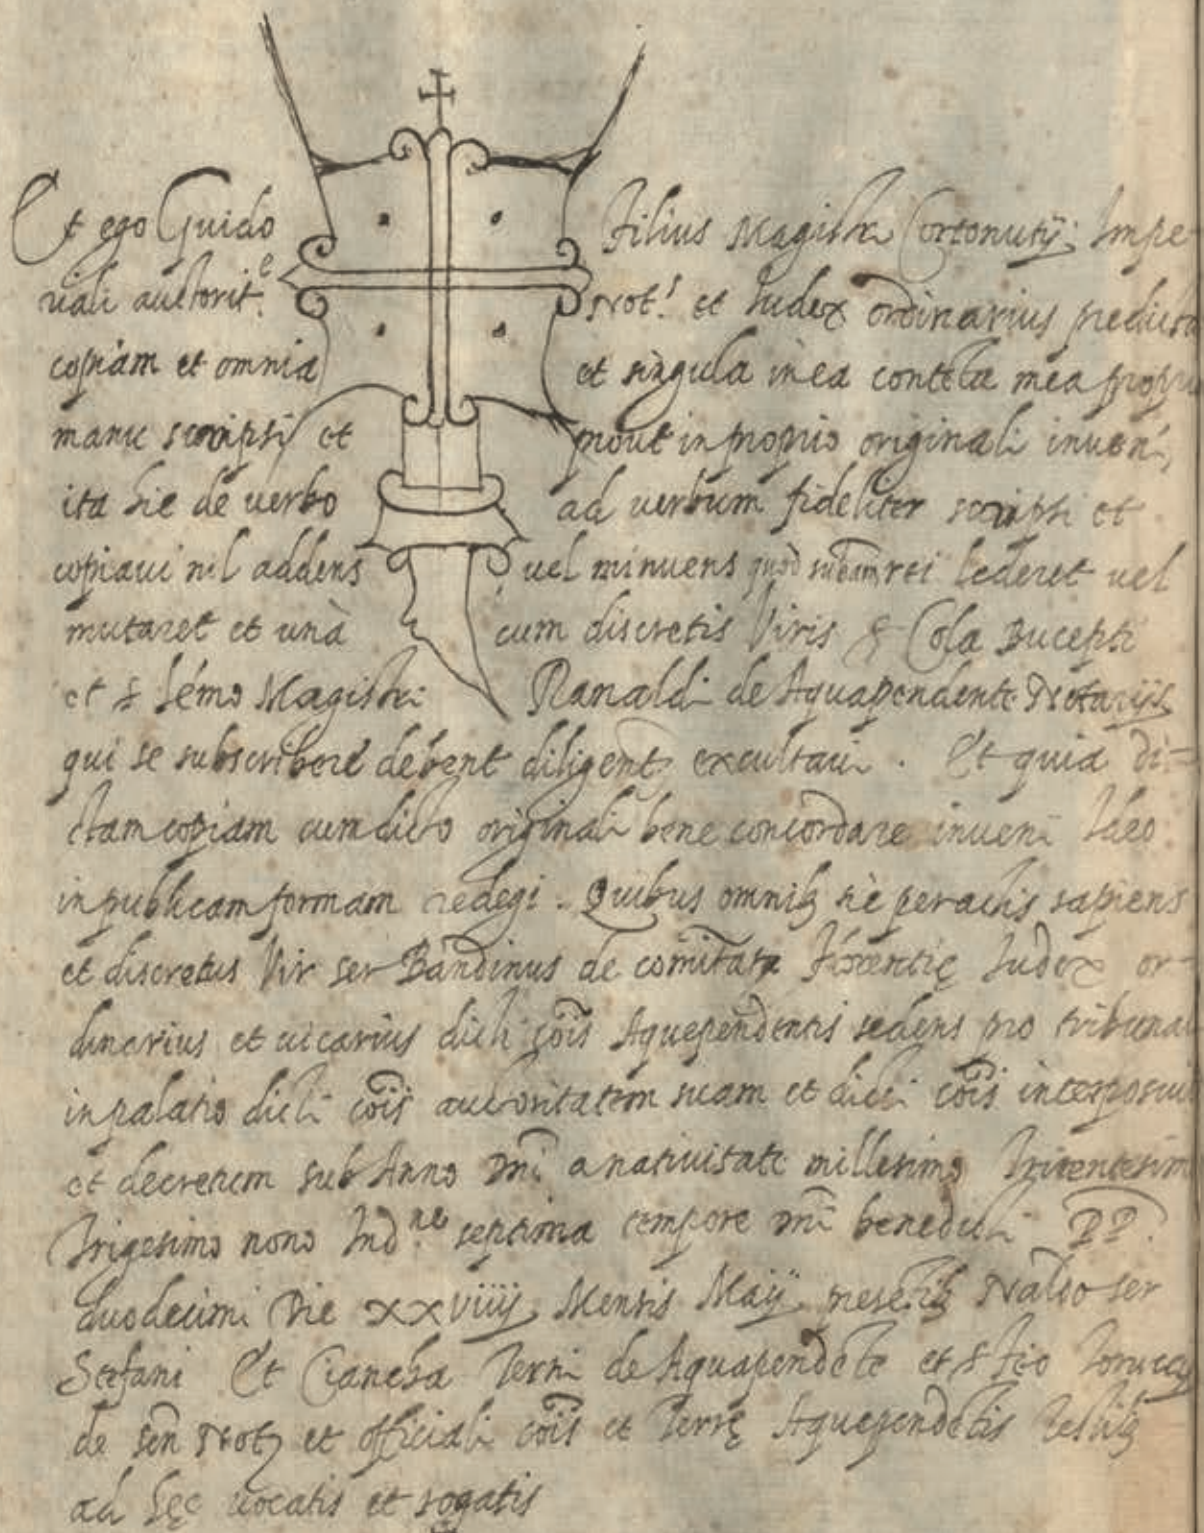 Et ego Guido Filius Magistri Cortonutij Impe-
riali auctorit.e Not.s et Iudex ordinarius predictã
copiam et omnia et singula in ea contẽta mea propria
manu scripsi et prout in proprio originali inveni,
ita hic de verbo ad verbum fideliter scripsi et
copiavi nil addens vel minuens quod substantiam rei lederet vel
mutaret et unà cum discretis Viris S Cola Bucepti
et S Magistri Ranaldi de Aquapendente Notarijs
qui se subscribere debent diligent. excultavi. Et quia di=
ctam copiam cum dicto originali bene concordare inveni Ideo
in publicam formam redegi. Quibus omnib. sic peractis sapiens
et discretus Vir ser Bandinus de comitatu Florentię Iudex or-
dinarius et vicarius dicti cõis Aquependentis sedens pro tribunali
in palatio dicti cõis auctoritatem suam et dicti cõis interposuit
et decretum sub Anno Dñi a nativitate millesimo Tricentesimo
Trigesimo nono Ind.ne septima tempore Dñi benedicti PP.
duodecimi Die XXVIIIJ Mensis Maij presẽtib. Naldo ser
Stefani Et Ciancha de Aquapendẽte et S
de Sen Not. et officiali cõis et Terrę Aquependẽtis Testib.
ad hęc vocatis et rogatis